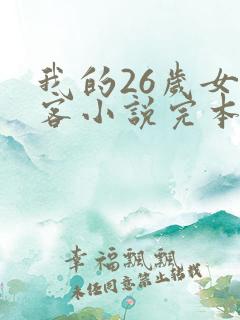 我的26岁女
客小说完本
幸福飘飘
未经同意禁止转载